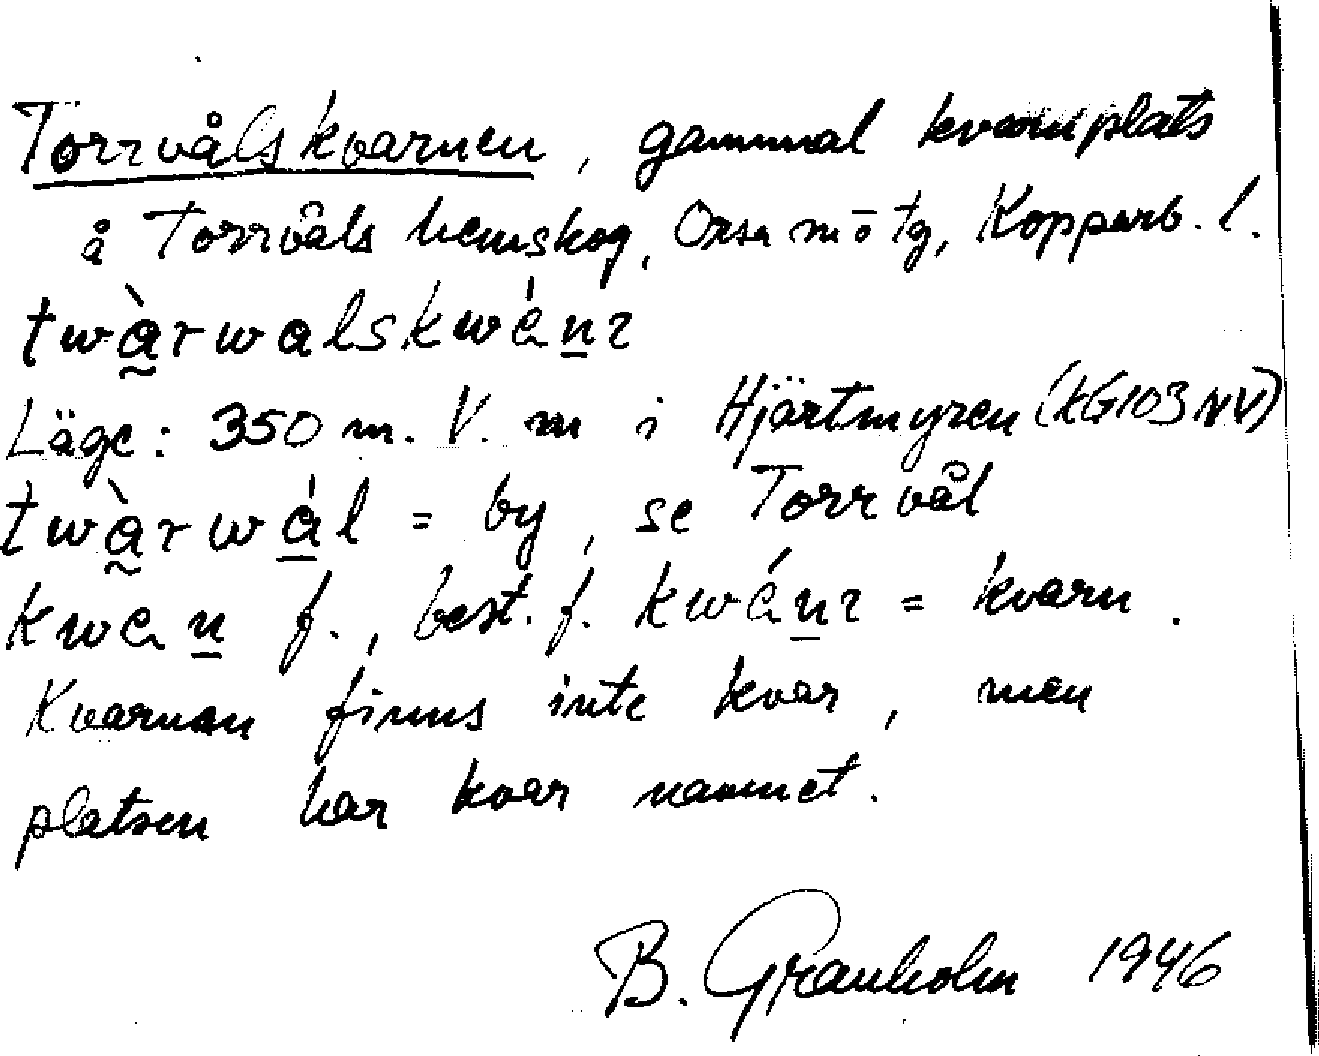 Torrvålskvarnen, gammal kvarnplats
å Torrvåls hemskog, Orsa m o tg, Kopparb. l.
twàrwalskwénɿ
Läge: 350 m. V. m i Hjärtmyren (KG103 NV)
twàrwál = by, se Torrvål
kwen f., best. f. kwénɿ = kvarn.
Kvarnen finns inte kvar, men
platsen har kvar namnet.
B. Granholm 1946